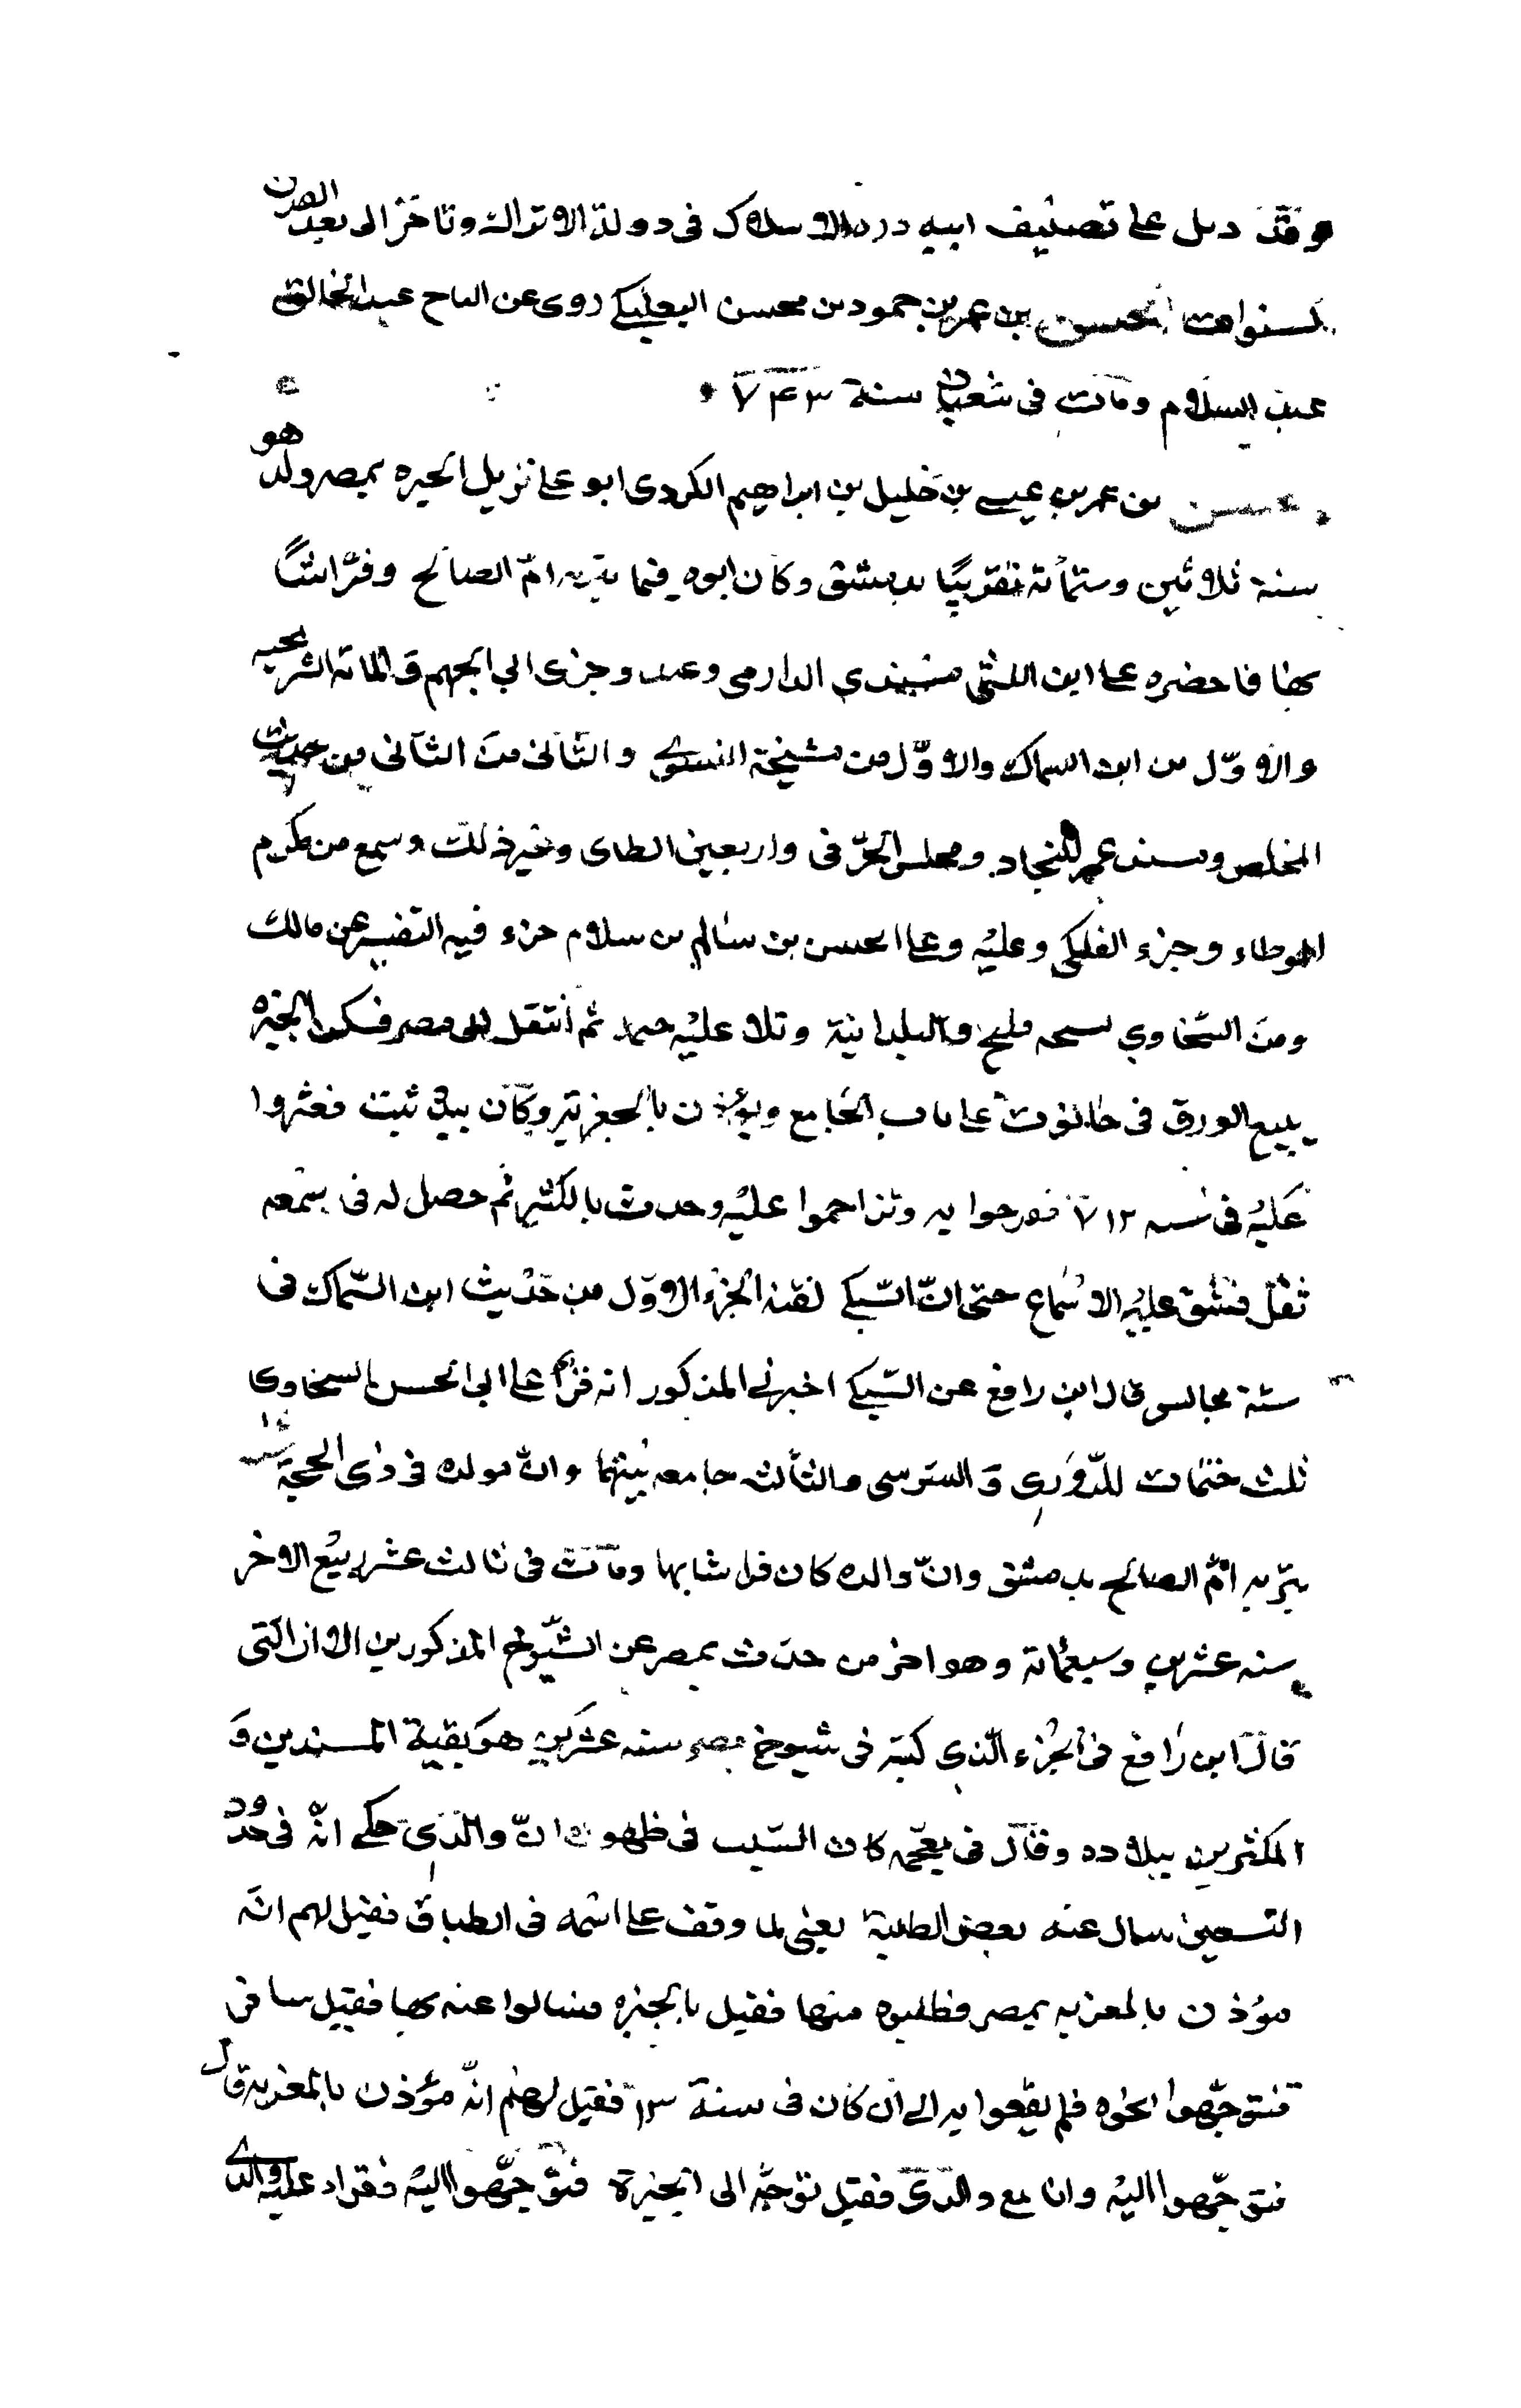 وقد ذيل على تصنيف ابيه درة الاسلاك فى دولة الاتراك وتاخر الى بعد القرن
بسنوات الحسن بن عمر بن حمود بن محسن البعلبكي روى عن التاج عبد الخالق
عبد السلام ومات فى شعبان سنة ٧٤٣
حسن بن عمر بن عيسى بن خليل بن ابراهيم الكردى ابو على نزيل الجيزه بمصر ولد هو
سنة ثلاثين وستمأئة تقريبًا بدمشق وكان ابوه قيما بتربه امّ الصالح وفرّاشًا
بها فاحضره على ابن اللتى مسندي الدارمى وعبد وجزئ ابي الجهم و المائه الشريحيه
والاوّل من ابن السماك والاوّل من مشيخة النسوى والثانى من الثانى من حديث
المخلص ومسند عمر للنجاد ومجلس الخرّفى واربعين الطائ وغير ذلك وسمع من مكرم
الموطاء وجزء الفلكى وعليه وعلى الحسن بن سالم بن سلام جزء فيه التفسير عن مالك
ومن السّخاوي نسخه فليح والبلدانية وتلا عليه ختمه ثم انتقل الى مصر فسكن الجيزه
يبيع الورق فى حانوت على باب الجامع ويؤذن وكان بيده ثبت فعثروا
عليه فى سنه ٧١٢ ففرحوا به وتزاحموا عليه وحدث بالكثير ثم حصل له فى سمعه
ثقل فشق عليه الاسماع حتى انّ السّبكي لقنه الجزء الاوّل من حديث ابن السّماك فى
ستة مجالس قال ابن رافع عن السّبكي اخبرنى المذكور انه قرأ على ابى الحسن السخاوى
ثلث ختمات للدّورى و السّوسى والثالثه جامعه بينهما وانّ مولده فى ذى الحجة سنه
بتربه امّ الصالح بدمشق وانّ والده كان فراشا بها ومات فى ثالث عشر ربيع الاخر
سنه عشرين وسبعمائة وهو اخر من حدث بمصر عن الشّيوخ المذكورين
قال ابن رافع فى الجزء الّذى كتبه فى شيوخ مصر سنه عشرين هو بقية المسندين و
المكثرين ببلاده وقال فى معجمه كان السّبب فى ظهوره انّ والدى حكى انّه فى حدود
التسعين سال عنه بعض الطلبة يعنى لما وقف على اسمه فى الطباق فقيل لهم انّه
موذن بالمعزيه بمصر فطلبوه منها فقيل بالجيزه فسالوا عنه بها فقيل سافر
فتوجّهوا نحوه فلم يقعوا به الى ان كان فى سنة ١٣ فقيل لهم انّه مؤذن بالمعزيه قال
فتوجّهوا اليه وانا مع والدى فقيل توجّه الى الجيزة فتوجّهوا اليه فقراء عليه والدى